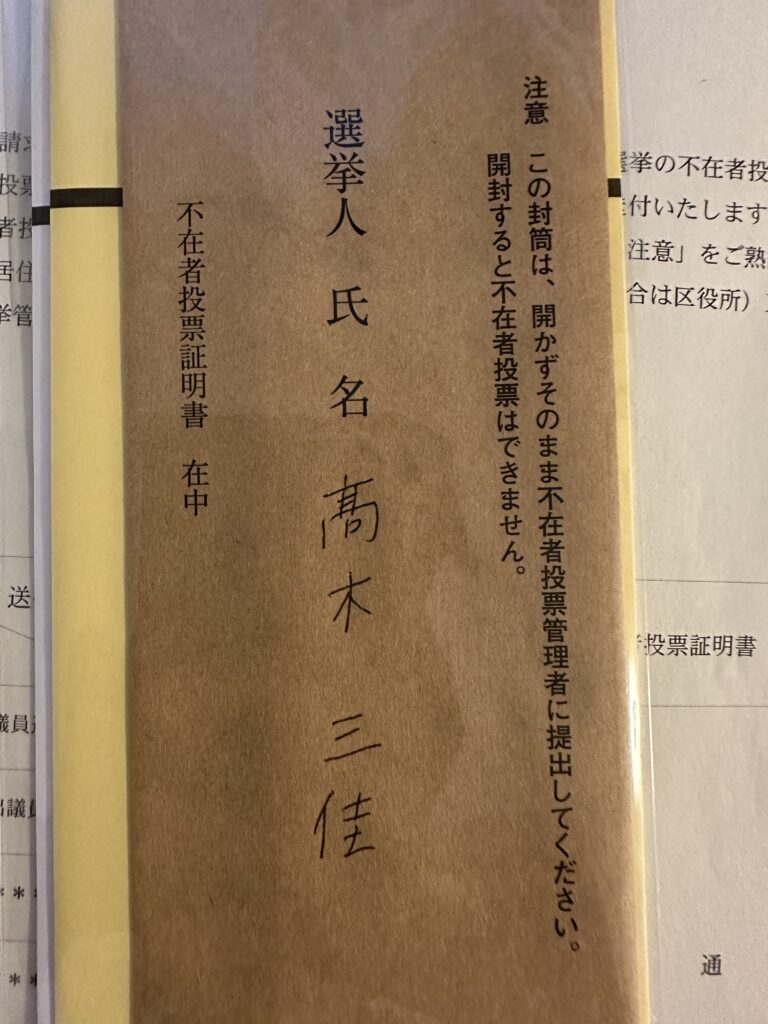 注意　この封筒は、開かずそのまま不在者投票管理者に提出してください。
開封すると不在者投票はできません。
選挙人　氏　名　髙木　三佳
不在者投票証明書　在中
選挙の不在者投
付いたします
注意」をご熟
合は区役所）
投票証明書
通
請求
投票
者投
居住
挙管
送
議員
出議員
＊＊
＊＊